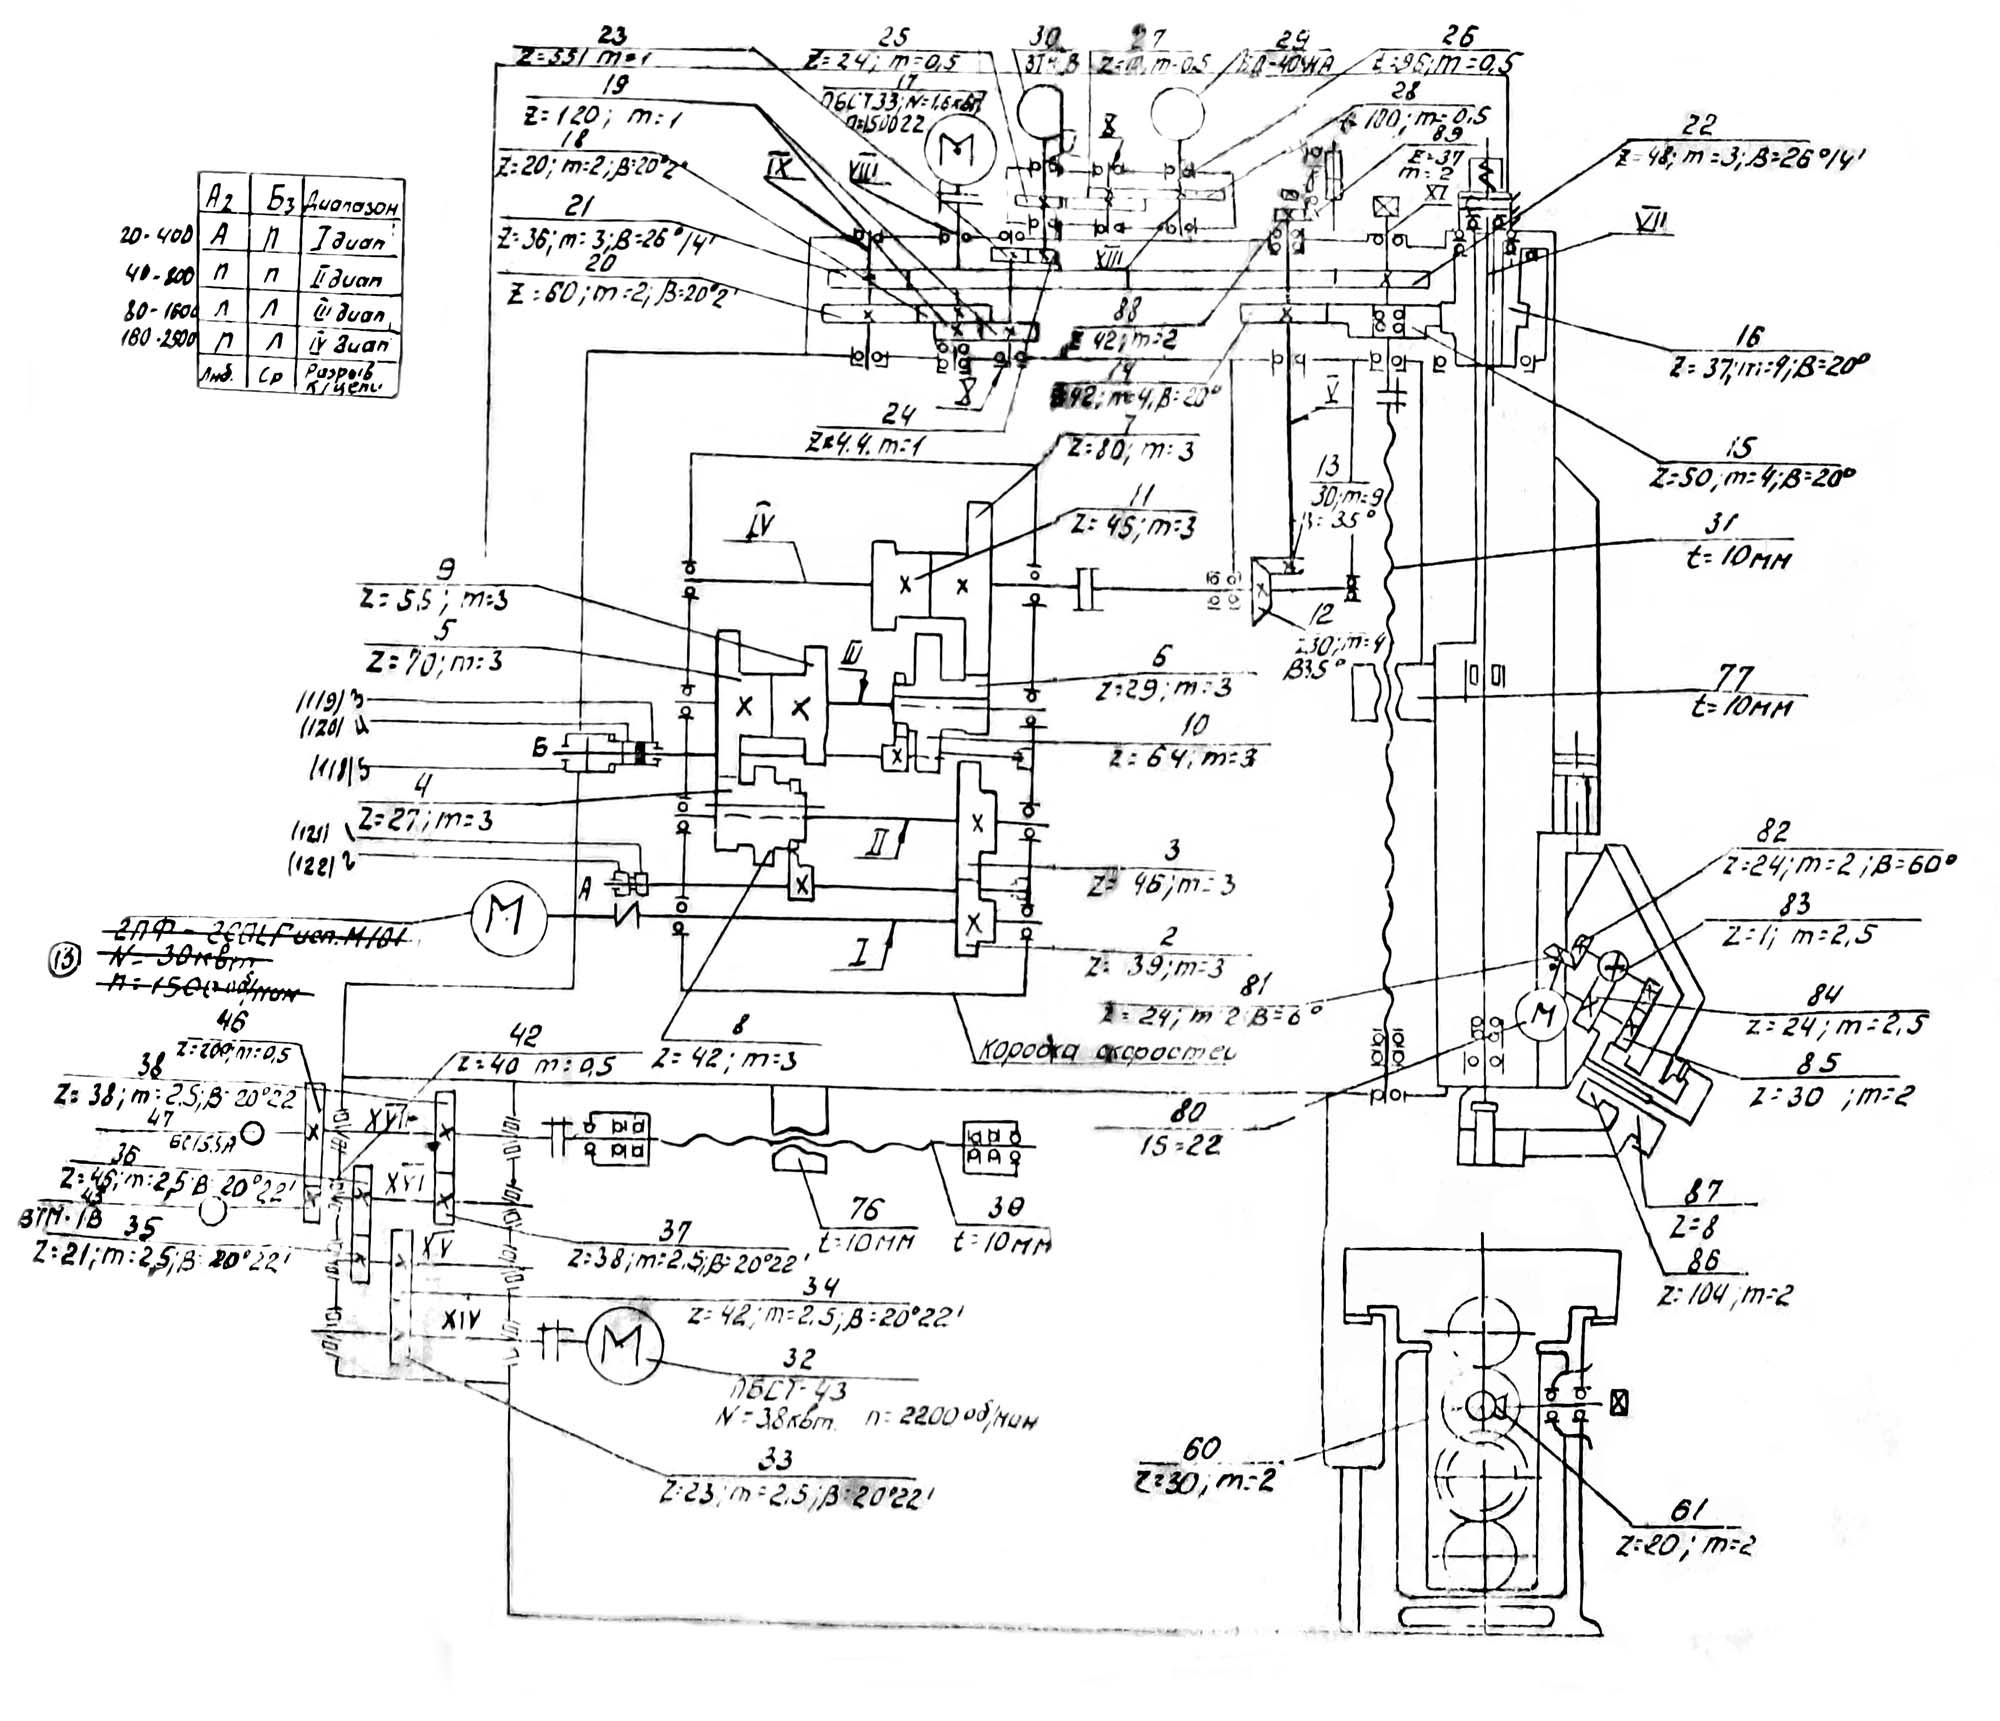 23
Z=55; m=1
25
Z=24; m=0,5
30
27
29
26
Z=96; m=0,5
17
ПБСТ33; N=1.6квт
19
Z=120; m=1
28
100; m=0.5
89
Z=37
m=2
22
Z=48; m=3; β=26°14'
18
Z=20; m=2; β=20°2'
IX
VIII
X
XI
VII
21
Z=36; m=3; β=26°14'
20
Z=60; m=2; β=20°2'
XIII
А2 Б3 Диапазон
20-400 А П I диап
40-800 П П II диап
80-1600 Л Л III диап
160-2500 П Л IV диап
Люб. Ср Разрыв к/цепи
88
Z 42; m=2
16
Z=37; m=4; β=20°
14
42; m=4, β=20°
V
X
24
Z=44. m=1
7
Z=80; m=3
15
Z=50; m=4; β=20°
13
30; m=
β=35°
11
Z=45; m=3
IV
31
t=10мм
9
Z=55; m=3
5
Z=70; m=3
12
Z30; m=4
β35°
III
6
Z=29; m=3
77
t=10мм
(119) 3
(120) И
Б
(118)
10
Z=64; m=3
4
Z=27; m=3
(121)
(122)
А
II
3
Z=46; m=3
82
Z=24; m=2; β=60°
83
Z=1; m=2,5
13
N=30квт
n=1500 об/мин
М
I
2
Z=39; m=3
81
Z=24; m=2 β=6°
84
Z=24; m=2,5
46
Z=200; m=0,5
42
Z=40 m=0,5
8
Z=42; m=3
Коробка скоростей
38
Z=38; m=2.5; β=20°22
85
Z=30; m=2
47
БС155А
XVII
80
1S=22
36
Z=46; m=2,5 β=20°22'
XVI
43
ВТМ-1В
35
Z=21; m=2,5; β=20°22'
XV
37
Z=38; m=2.5; β=20°22'
76
t=10мм
30
t=10мм
87
Z=8
86
Z=104; m=2
34
Z=42; m=2.5; β=20°22'
XIV
М
32
ПБСТ-43
N=3.8квт. n=2200об/мин
33
Z=23; m=2.5; β=20°22'
60
Z=30; m=2
61
Z=20; m=2